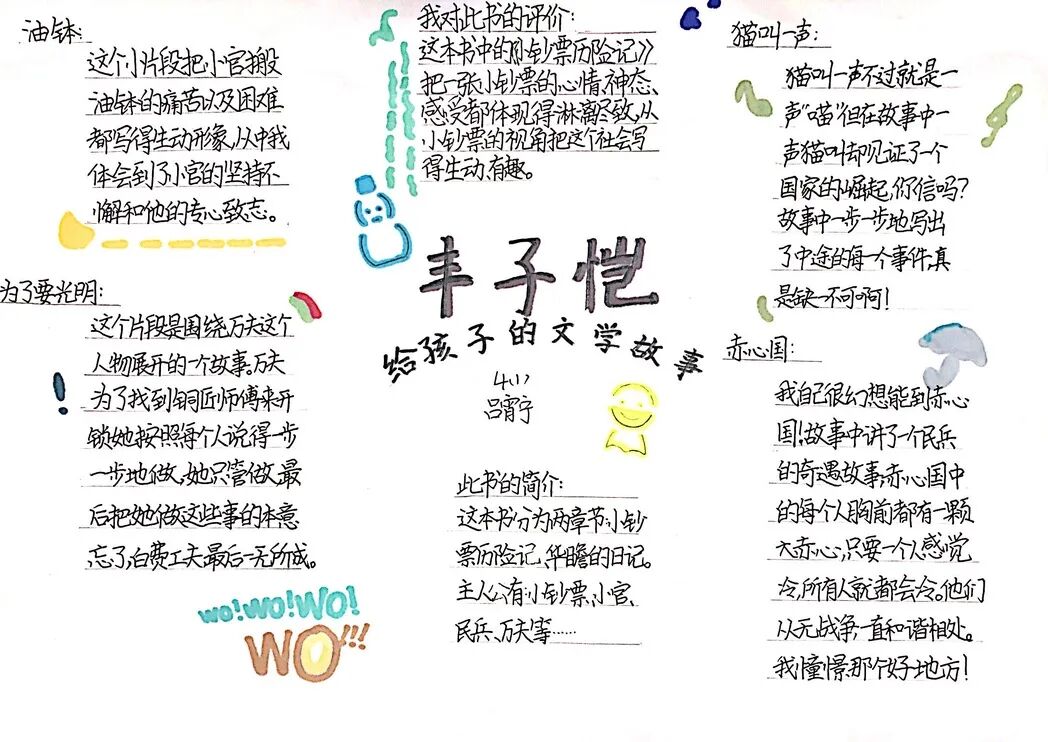 油钵:
这个小片段把小官搬
油钵的痛苦以及困难
都写得生动形象,从中我
体会到了小官的坚持不
懈和他的专心致志。
为了要光明:
这个片段是围绕万夫这个
人物展开的一个故事,万夫
为了找到铜匠师傅来开
锁她按照每个人说得一步
一步地做,她只管做,最
后把她做这些事的本意
忘了,白费工夫最后一无所成。
wo!wo!WO!
WO!!!
我对此书的评价:
这本书中的《小钞票历险记》
把一张小钞票的心情、神态、
感受都体现得淋漓尽致,从
小钞票的视角把这个社会写
得生动、有趣。
丰子恺
给孩子的文学故事
4.17
吕霄宇
此书的简介:
这本书分为两章节:小钞
票历险记、华瞻的日记。
主人公有:小钞票、小官、
民兵、万夫等……
猫叫一声:
猫叫一声不过就是一
声“喵”但在故事中一
声猫叫却见证了一个
国家的崛起,你信吗?
故事中一步一步地写出
了中途的每个事件,真
是缺一不可啊!
赤心国:
我自己很幻想能到赤心
国!故事中讲了一个民兵
的奇遇故事,赤心国中
的每个人胸前都有一颗
大赤心,只要一个人感觉
冷,所有人就都会冷。他们
从无战争,一直和谐相处。
我憧憬那个好地方!